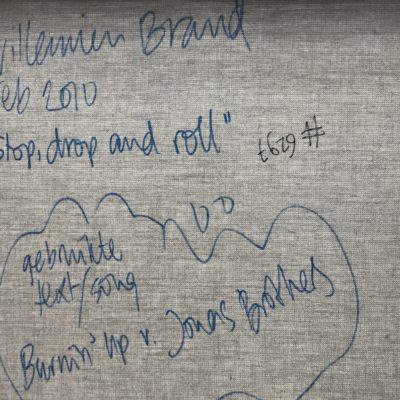 Willemien Brand
Feb 2010
"Stop, drop and roll"
#6297
gebruikte
text/song
Burnin' up v. Jonas Brothers